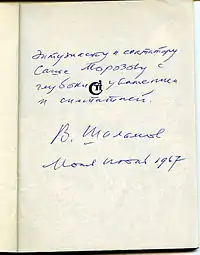 Энтузиасту и новатору
Саше Морозову с
глубоким уважением
и симпатией.
В. Шаламов
Москва июнь 1967